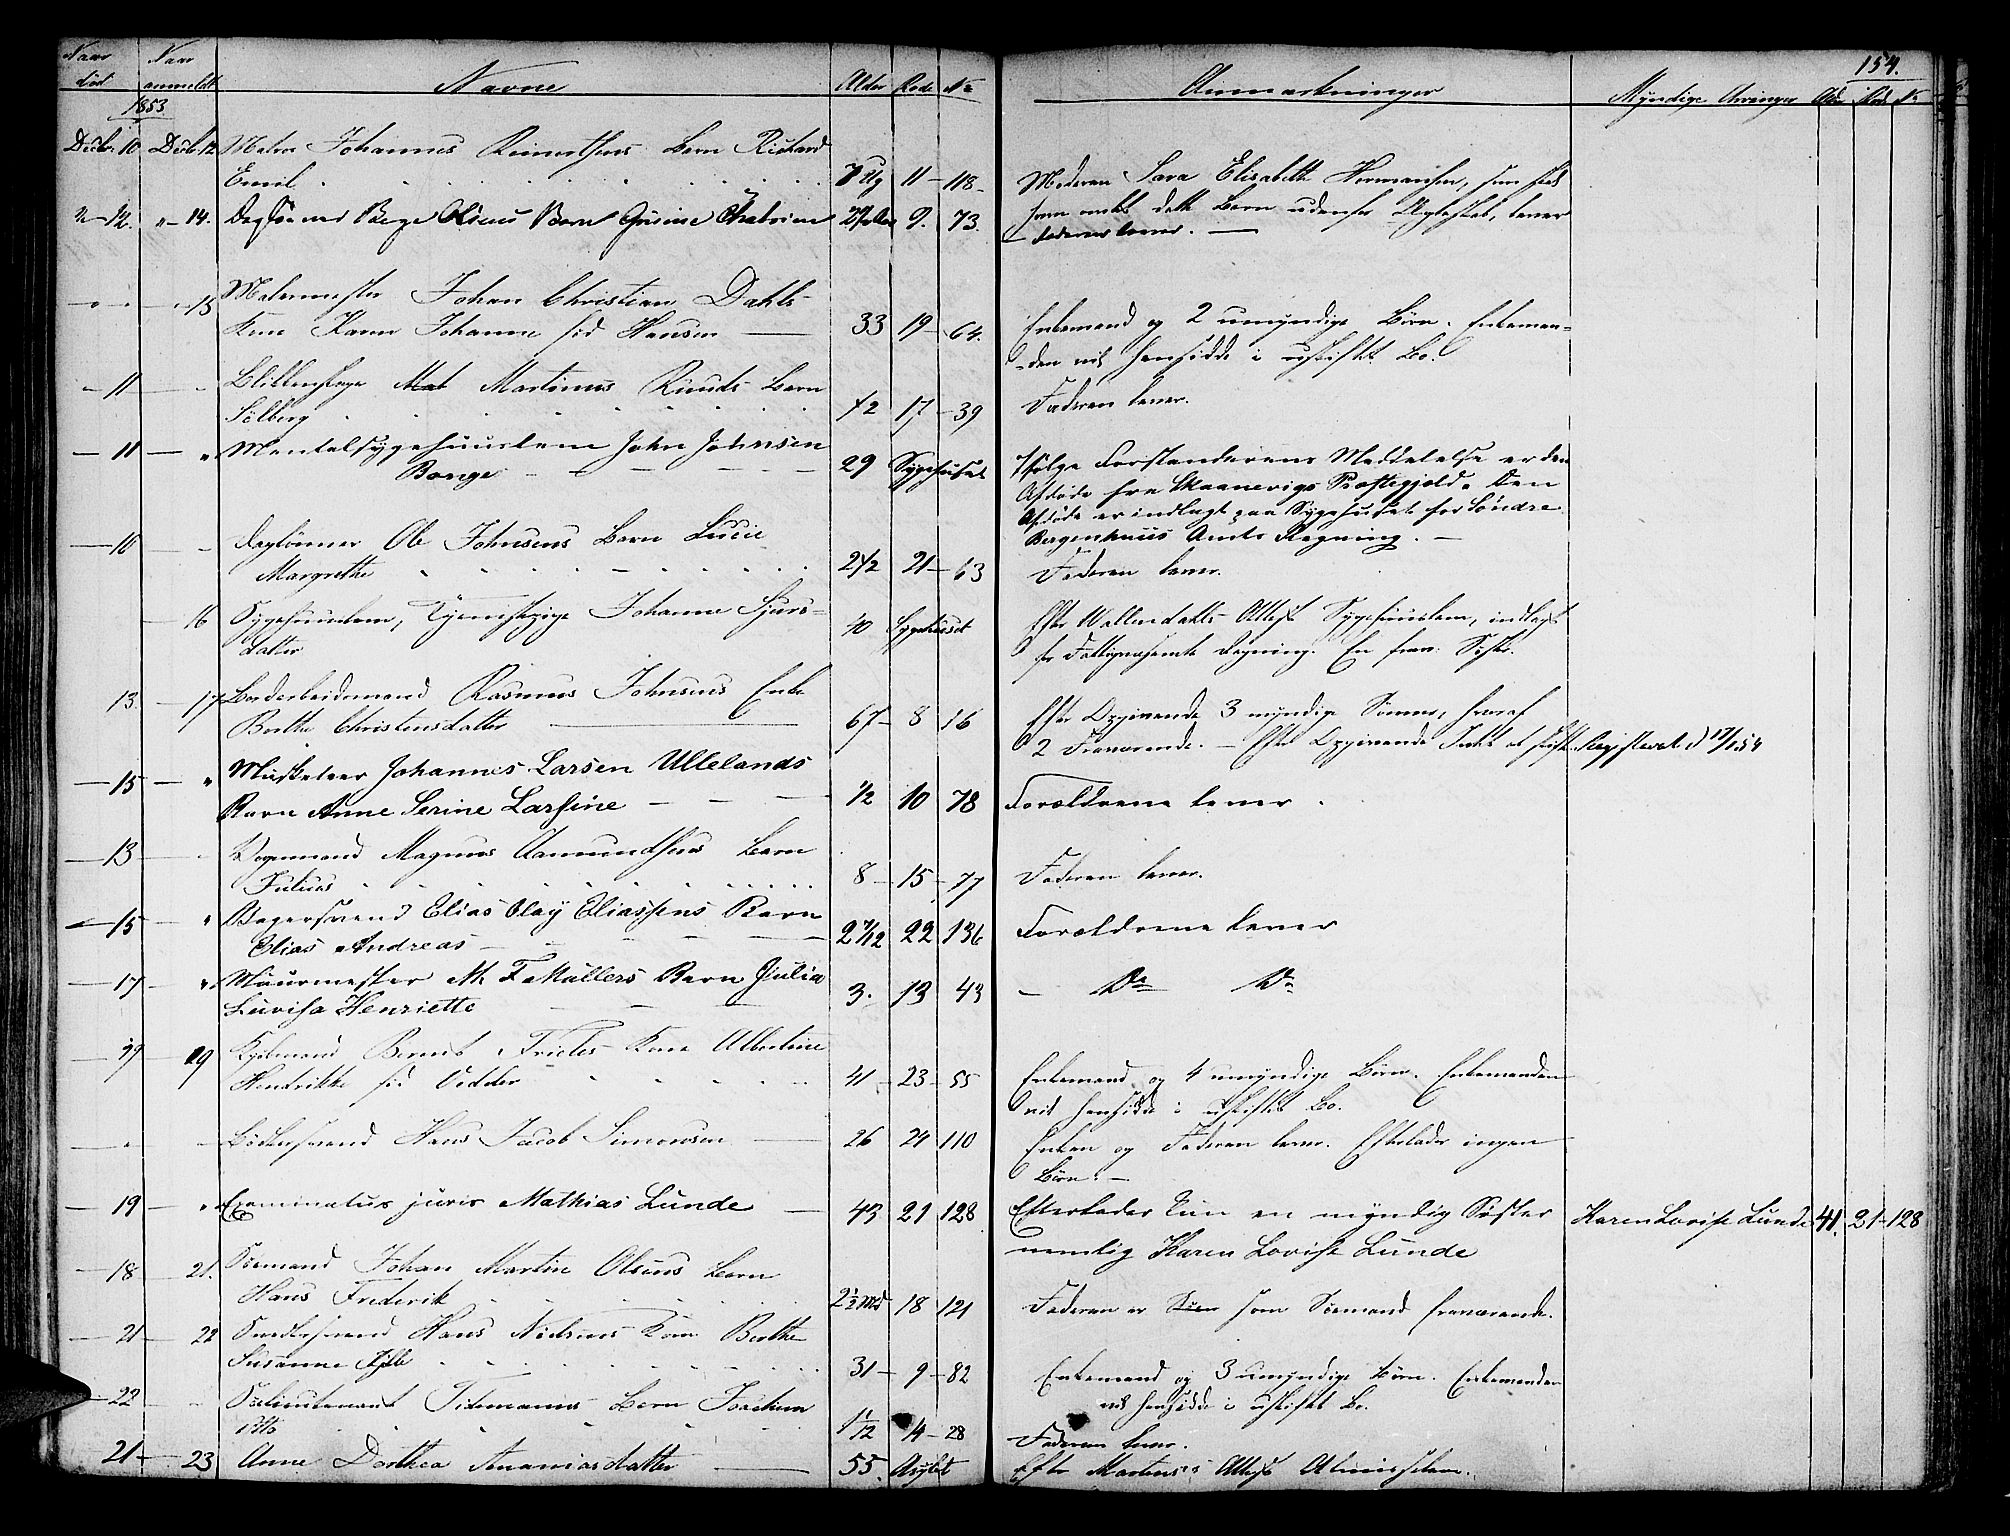 154.
Naar død Naar anmeldt Navne Alder Rode No Anmærkninger Myndige Arvinger Alder Rod No
1853.
Decbr 10 Decbr 12 Matros Johannes Reinertsens Barn Richard
Emil 7 Ug 11 - 118 - Moderen Sara Elisabeth Hermansen, som
dette Barn udenfor Ægteskab, lever
- Faderen lever. -
" - 12. " - 14. Daglønner Børge Olsens Barn Gurine Chatrine 9. 73.
" - 15 Malermester Johan Christian Dahls
Kone Karen Johanne fød Hansen 33 19 - 64. Enkemand og 2 umyndige Børn. Enkeman-
den vil hensidde i uskiftet Bo.
- 11 - " Blikkenslager Martinus Ruuds Barn
Sølberg 1/2 17 - 39 Faderen lever.
- 11 - " Mentalsygehuuslem John Johnsen
Borge 29 Sygehuset Ifølge Forstanderens Meddelelse er den
Afdøde fra Skaanevigs Præstegjeld. Den
Afdøde er indlagt paa Sygehuset for Søndre
Bergenhuus Amts Regning. -
- 10 - Daglønner Ole Johnsens Barn Lucie
Margrethe 2 1/2 21 - 63 Faderen lever.
- 16 Sygehuuslem, Tjenestepige Johanne Sjurs-
datter 40 Sygehuset Efter Wallendahls Attest Sygehuuslem, indlagt
for Fattigvæsenets Regning. En frav. Søster.
13. - 17 Bordarbeidsmand Rasmus Johnsens Enke
Berthe Christensdatter 67 - 8 16 Efter Opgivende 3 myndige Sønner, hvoraf
2 Fraværende. - Efter Opgivende Intet at skifte. Registreret d 17/1 54
- 15 - " Musketeer Johannes Larsen Ullelands
Barn Anne Serine Larsine 1/2 10 78 Forældrene lever.
- 13 - Vognmand Magnus Aamundsens Barn
Julius 8 - 15 - 77 Faderen lever.
- 15 - " Bagersvend Elias Olay Eliassens Barn
Elias Andreas 2 7/12 22 136 Forældrene lever
- 17 - " Muurmester M. F. Møllers Barn Julia
Luvisa Henriette 3. 13 43 - Do Do
- 19 - 19 Bernt Frieles Kone Albertine
Hendrikke fød Vedder 41 - 23 - 55 Enkemand og 4 umyndige Børn. Enkemanden
vil hensidde i uskiftet Bo.
Bødkersvend Hans Jacob Simonsen 26 24 110 Enken og Faderen lever. Efterlader ingen
Børn. -
- 19 - " Examinatus juris Mathias Lunde 43 21 128 Efterlader kun en myndig Søster Karen Lovise Lunde 41. 21 - 128
nemlig Karen Lovise Lunde
- 18 - 21. Sømand Johan Martin Olsens Barn
Hans Frederik 2 1/2 Md 18 121 Faderen er som Sømand fraværende.
- 21 - 22 Snedkersvend Hans Nielsens Kone Berthe
Susanne 31 - 9 - 82 Enkemand og 3 umyndige Børn. Enkemanden
vil hensidde i uskiftet Bo.
- 22 - Sølieutenant Tidemanns Barn Joachim
Otto 1 1/12 4 - 28 Faderen lever.
21 - 23 Anne Dorthea Ananiasdatter 55. Asylet Efter Martens's Attest Almisselem.